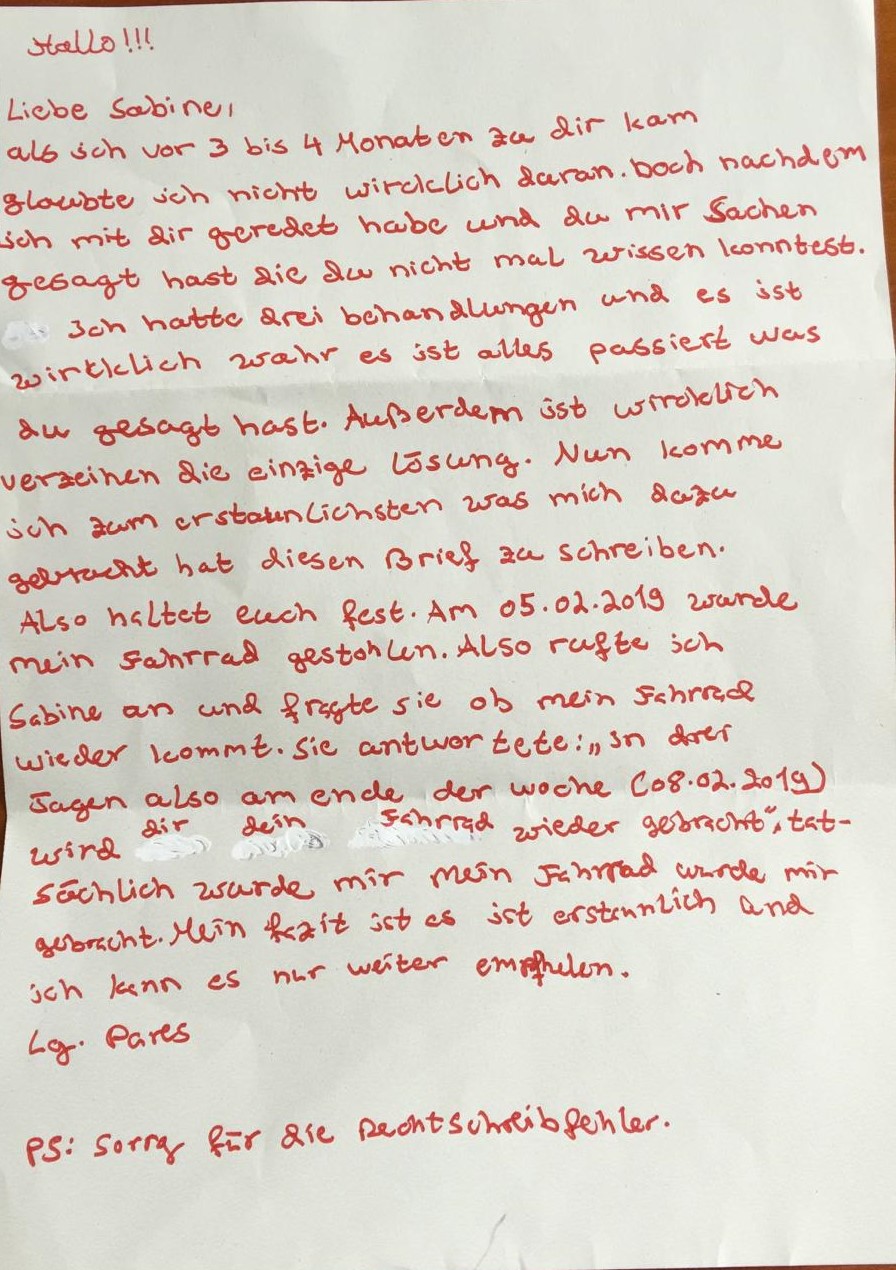 Hallo!!!
Liebe Sabine,
als ich vor 3 bis 4 Monaten zu dir kam
glaubte ich nicht wircklich daran. Doch nachdem
ich mit dir geredet habe und du mir Sachen
gesagt hast die du nicht mal wissen konntest.
Ich hatte drei behandlungen und es ist
wirtklich wahr es ist alles passiert was
du gesagt hast. Außerdem ist wircklich
verzeihen die einzige Lösung. Nun komme
ich zum erstaunlichsten was mich dazu
gebracht hat diesen Brief zu schreiben.
Also haltet euch fest. Am 05.02.2019 wurde
mein Fahrrad gestohlen. Also rufte ich
Sabine an und fragte sie ob mein Fahrrad
wieder kommt. Sie antwortete: „In drei
Tagen also am ende der woche (08.02.2019)
wird dir dein Fahrrad wieder gebracht", tat-
sächlich wurde mir mein Fahrrad wurde mir
gebracht. Mein fazit ist es ist erstaunlich und
ich kann es nur weiter empfhelen.
Lg. Pares
PS: Sorry für die Rechtschreibfehler.